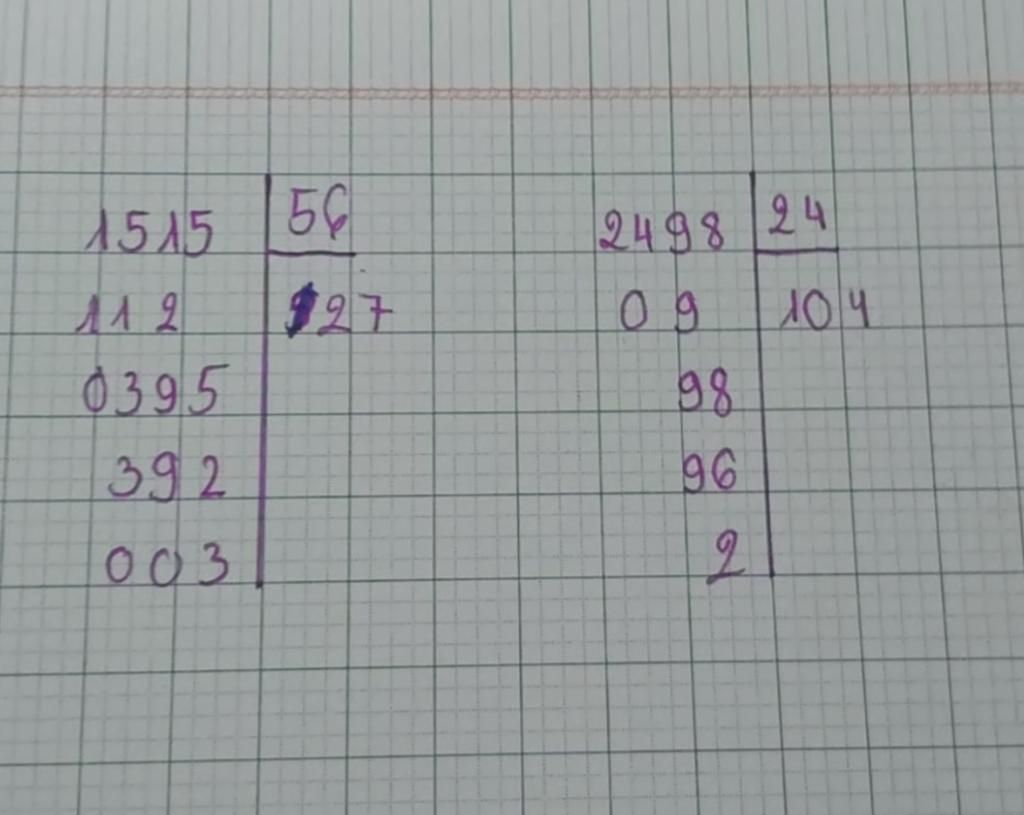 1515 56
112 27
0395
392
003
2498 24
09 104
98
96
2